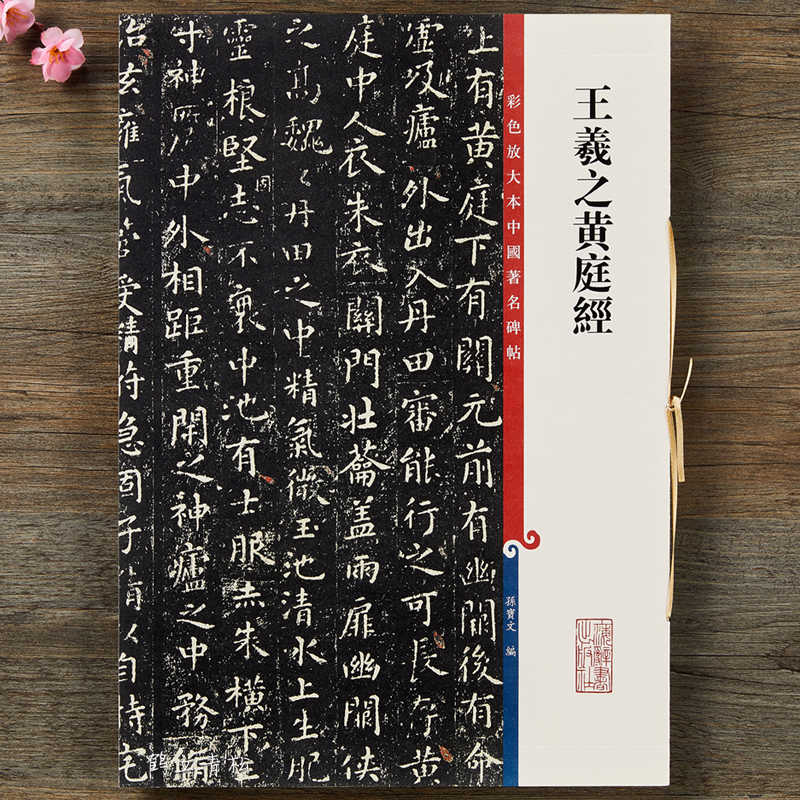 王羲之黄庭經
彩色放大本中國著名碑帖
孫寶文 編
上有黄庭下有關元前有幽闕後有命
噓吸廬外出入丹田審能行之可長存黄
庭中人衣朱衣關門壯籥盖兩扉幽闕俠
之高巍〻丹田之中精氣微玉池清水上生肥
靈根堅固志不衰中池有士服赤朱横下三
寸神所中外相距重閉之神廬之中務脩
治玄廱氣管受精符急固子精以自持宅
海辭書
出版社